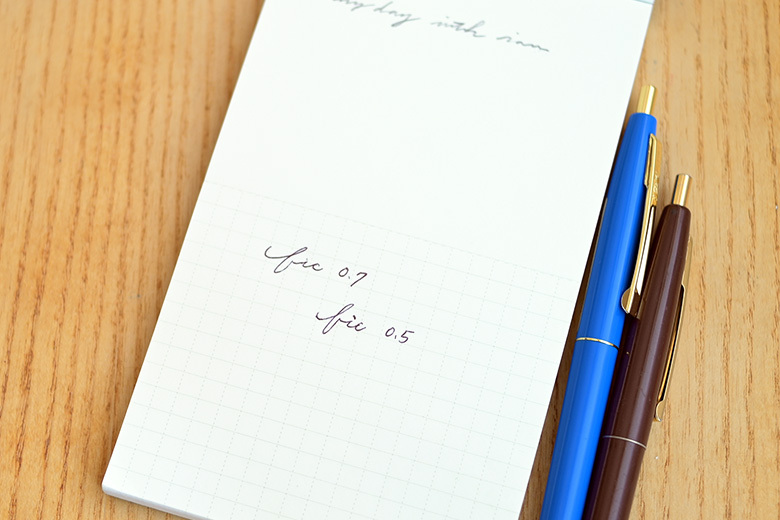 day with siam
bic 0.7
bic 0.5